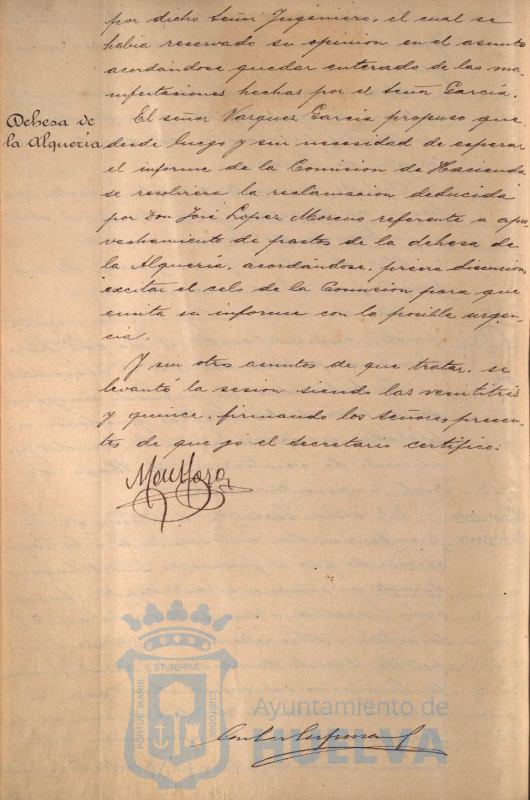 por dicho Señor Ingeniero, el cual se
habia reservado su opinion en el asunto
acordándose quedar enterado de las ma-
nifestaciones hechas por el Señor García.
Dehesa de
la Alquería
El señor Vazquez García propuso que
desde luego y sin necesidad de esperar
el informe de la Comision de Hacienda
se resolviera la reclamacion deducida
por Don José Lopez Moreno referente a apro-
vechamiento de pastos de la dehesa de
la Alquería, acordándose, prévia discusion,
excitar el celo de la Comision para que
emita su informe con la posible urgen-
cia.
Y sin otros asuntos de que tratar, se
levantó la sesion siendo las veintitres
y quince, firmando los señores presen-
tes de que yo el Secretario certifico:
PORTUS MARIS
ET TERRÆ
CUSTODIA
Ayuntamiento de
HUELVA